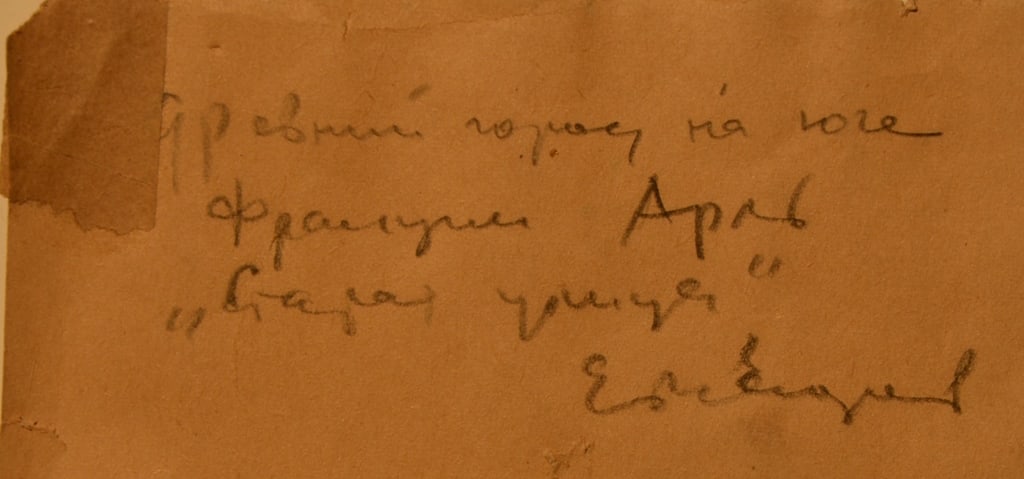 Древний город на юге
Франции Арль
„Старая улица“